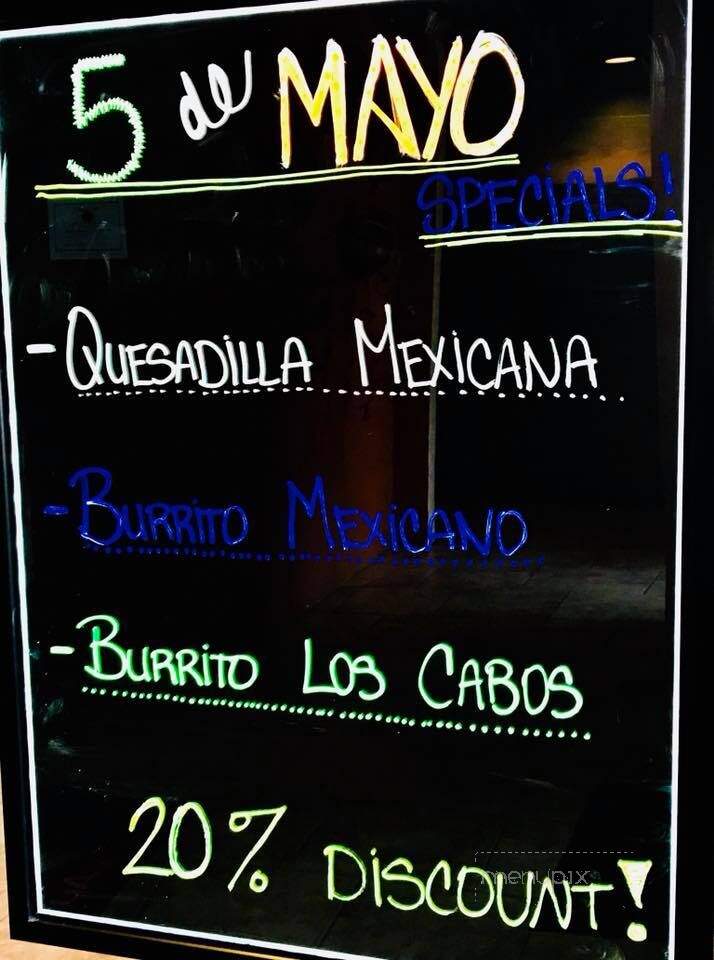 5 de MAYO
SPECiALS!
- QUESADiLLA MEXiCANA
- BURRiTO MEXiCANO
- BURRiTO LOS CABOS
20% DiSCOUNT!
menupix